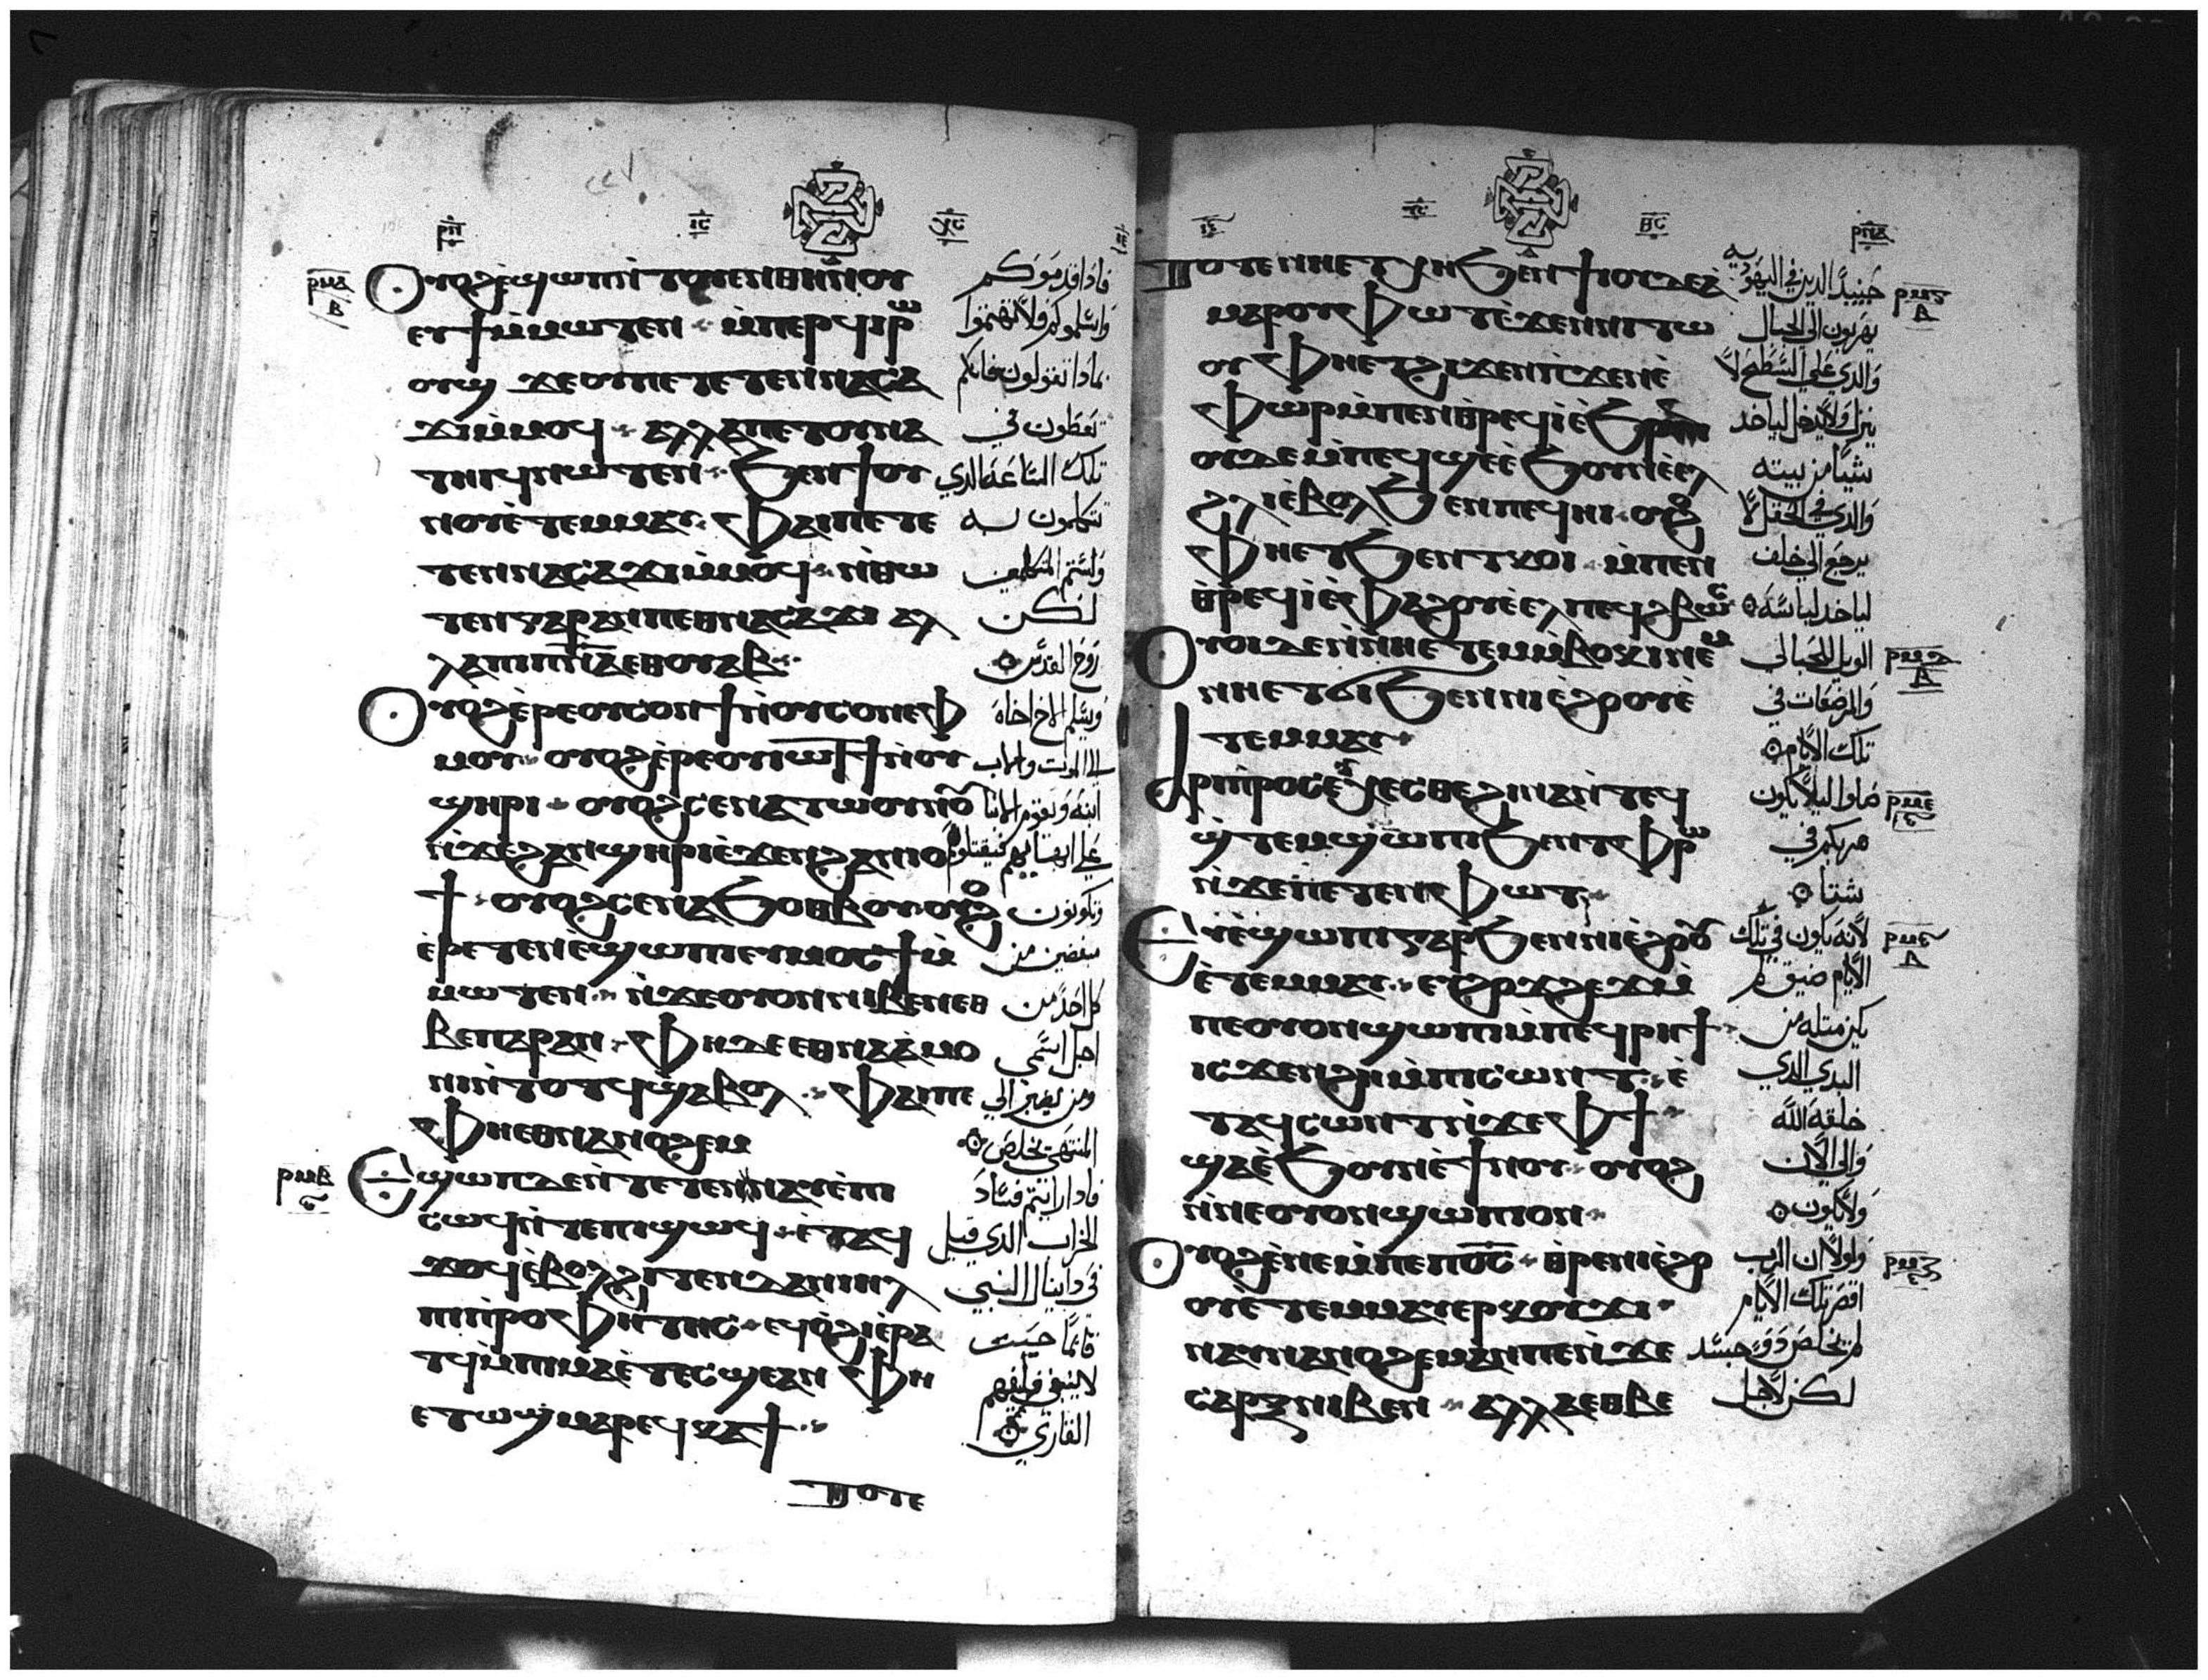 ⲟⲩⲟϩ ⲉ̀ϣⲱⲡ ⲛ̀ⲧⲟⲩⲉⲛⲑⲏⲛⲟⲩ
ⲉⲩϯⲙ̀ⲙⲱⲧⲉⲛ ⲙ̀ⲡⲉⲣϥⲓⲣⲱ
ⲟⲩϣ ϫⲉ ⲟⲩⲡⲉⲧⲉⲧⲉⲛⲛⲁⲥⲁ
ϫⲓⲙ̀ⲙⲟϥ ⲁⲗⲗⲁ ⲡⲉⲧⲟⲩⲛⲁ
ⲧⲏⲓϥ ⲛⲱⲧⲉⲛ ϧⲉⲛ ϯⲟⲩ
ⲛⲟⲩ ⲉ̀ⲧⲉⲙⲙⲁⲩ ⲫⲁⲓ ⲡⲉⲧⲉ
ⲧⲉⲛⲛⲁⲥⲁϫⲓ ⲙ̀ⲙⲟϥ ⲛ̀ⲑⲱ
ⲧⲉⲛ ⲅⲁⲣ ⲁⲛ ⲡⲉⲑⲛⲁⲥⲁϫⲓ ⲁⲗ
ⲗⲁ ⲡⲓⲡⲛ̅ⲁ̅ ⲉⲑⲟⲩⲁⲃ
ⲟⲩⲟϩ ⲉ̀ⲣⲉ ⲟⲩⲥⲟⲛ ϯ ⲛ̀ⲟⲩⲥⲟⲛ ⲉⲫ
ⲙⲟⲩ ⲟⲩⲟϩ ⲉ̀ⲣⲉ ⲟⲩⲓⲱⲧ ϯ ⲛ̀ⲟⲩ
ϣⲏⲣⲓ ⲟⲩⲟϩ ⲥⲉⲛⲁⲧⲱⲟⲩⲛⲟⲩ
ⲛ̀ϫⲉ ϩⲁⲛϣⲏⲣⲓ ⲉ̀ϫⲉⲛ ϩⲁⲛⲓⲟ
ϯ ⲟⲩⲟϩ ⲥⲉⲛⲁϧⲟⲑⲃⲟⲩ ⲟⲩⲟϩ
ⲉ̀ⲣⲉⲧⲉⲛⲉ̀ϣⲱⲡⲓ ⲉⲩⲙⲟⲥϯ ⲙ̀
ⲙⲱⲧⲉⲛ ⲛ̀ϫⲉ ⲟⲩⲟⲛ ⲛⲓⲃⲉⲛ ⲉⲑ
ⲃⲉ ⲡⲁⲣⲁⲛ ⲫⲏ ⲇⲉ ⲉⲑⲛⲁⲁ̀ⲙⲟ
ⲛⲓ ⲛ̀ⲧⲟⲧϥ ϣⲁⲃⲟⲗ ⲫⲁⲓ ⲡⲉ
ⲫⲏ ⲉⲑⲛⲁⲛⲟϩⲉⲙ
ⲉ̀ϣⲱⲡ ⲇⲉ ⲛ̀ⲧⲉⲧⲉⲛⲛⲁⲩ ⲉ̀ⲡⲓ
ⲥⲱϥ ⲛ̀ⲧⲉ ⲡⲓϣⲱϥ ⲉ̀ⲧⲁϥ
ϫⲟϥ ⲉ̀ⲃⲟⲗ ϩⲓⲧⲉⲛ ⲇⲁⲛⲓⲏⲗ
ⲡⲓⲡⲣⲟⲫⲏⲧⲏⲥ ⲉϥⲟ̀ϩⲓ ⲉ̀ⲣⲁ
ⲧϥ ⲙ̀ⲡⲓⲙⲁ ⲉ̀ⲧⲉⲥϣⲉ ⲁⲛ ⲫⲏ
ⲉⲧⲱϣ ⲙⲁⲣⲉϥⲕⲁϯ
ⲧⲟⲧⲉ
فاذا قدموكم
واسلموكم فلا تهتموا
بماذا تقولون فانكم
تعطون في
تلك الساعة الذي
تتكلمون به
ولستم المتكلمين
لكن
روح القدس
ويسلم الاخ اخاه
الى الموت والاب
ابنه وتقوم الابنا
على ابهاتهم فيقتلوهم
وتكونون
مبغضين من
كل احد من
اجل اسمي
ومن يصبر الى
المنتهى يخلص
فاذا رايتم فساد
الخراب الذي قيل
في دانيال النبي
قائما حيث
لا ينبغي فليفهم
القاري
ⲧⲟⲧⲉ ⲛⲏ ⲉⲧⲭⲏ ϧⲉⲛ ϯⲓⲟⲩⲇⲉⲁ̀
ⲙⲁⲣⲟⲩⲫⲱⲧ ⲉ̀ϫⲉⲛ ⲛⲓⲧⲱ
ⲟⲩ ⲫⲏ ⲉⲧϩⲓϫⲉⲛ ⲡⲓϫⲉⲛⲉ̀
ⲫⲱⲣ ⲙ̀ⲡⲉⲛⲑⲣⲉϥⲓ̀ ⲉ̀ϧⲣⲏⲓ
ⲟⲩⲇⲉ ⲙ̀ⲡⲉϥϣⲉ ⲉ̀ϧⲟⲩⲛ ⲉ̀ⲉⲗ
ϩⲗⲓ ⲉ̀ⲃⲟⲗ ϧⲉⲛ ⲡⲉϥⲏⲓ ⲟⲩⲟϩ
ⲫⲏ ⲉⲧϧⲉⲛ ⲧⲕⲟⲓ ⲙ̀ⲡⲉⲛ
ⲑⲣⲉϥⲓ̀ ⲉ̀ⲫⲁϩⲟⲩ ⲉ̀ⲉⲗ ⲡⲉϥϩⲃⲱⲥ
ⲟⲩⲟⲓ ⲇⲉ ⲛ̀ⲛⲏ ⲉⲧⲉⲙⲃⲟⲕⲓ ⲛⲉⲙ
ⲛⲏ ⲉⲧϭⲓ ϧⲉⲛ ⲛⲓⲉ̀ϩⲟⲟⲩ ⲉ̀
ⲧⲉⲙⲙⲁⲩ
ⲁⲣⲓⲡⲣⲟⲥⲉⲩⲭⲉⲥⲑⲉ ϩⲓⲛⲁ ⲛ̀ⲧⲉϥ
ϣ̀ⲧⲉⲙϣⲱⲡⲓ ϧⲉⲛ ⲧⲫⲣⲱ
ⲛ̀ϫⲉ ⲡⲉⲧⲉⲛⲫⲱⲧ
ⲉⲩⲉ̀ϣⲱⲡⲓ ⲅⲁⲣ ϧⲉⲛ ⲛⲓⲉ̀ϩⲟⲟⲩ
ⲉ̀ⲧⲉⲙⲙⲁⲩ ⲉⲩϩⲟϫϩⲉϫ ⲙ̀
ⲡⲉ ⲟⲩⲟⲛ ϣⲱⲡⲓ ⲙ̀ⲡⲉϥⲣⲏϯ
ⲓⲥϫⲉⲛ ϩⲏ ⲙ̀ⲡⲓⲥⲱⲛⲧ ⲉ̀
ⲧⲁϥⲥⲱⲛⲧ ⲛ̀ϫⲉ ⲫϯ
ϣⲁ ⲉ̀ϧⲟⲩⲛ ⲉ̀ϯⲛⲟⲩ ⲟⲩⲟϩ
ⲛ̀ⲛⲉ ⲟⲩⲟⲛ ϣⲱⲡⲓ ⲟⲛ
ⲟⲩⲟϩ ⲉ̀ⲛⲉ ⲙ̀ⲡⲉ ⲡⲟ̅ⲥ̅ ⲑⲣⲉ ⲛⲓⲉ̀ϩⲟ
ⲟⲩ ⲉ̀ⲧⲉⲙⲙⲁⲩ ⲉⲣⲕⲟⲩϫⲓ
ⲛⲁⲩⲛⲁⲛⲟϩⲉⲙ ⲁⲛ ⲡⲉ ⲛ̀ϫⲉ
ⲥⲁⲣⲝ ⲛⲓⲃⲉⲛ ⲁⲗⲗⲁ ⲉⲑⲃⲉ
حينيذ الذين في اليهودية
يهربون الى الجبال
والذي على السطح لا
ينزل ولا يدخل لياخذ
شيا من بيته
والذي في الحقل لا
يرجع الى خلف
لياخذ لباسه
الويل للحبالى
والمرضعات في
تلك الايام
صلوا ليلا يكون
هربكم في
شتا
لانه يكون في تلك
الايام ضيق لم
يكن مثله من
البدي الذي
خلقه الله
والى الان
ولا يكون
ولولا ان الرب
اقصر تلك الايام
لم يخلص ذو جسد
لكن لاجل